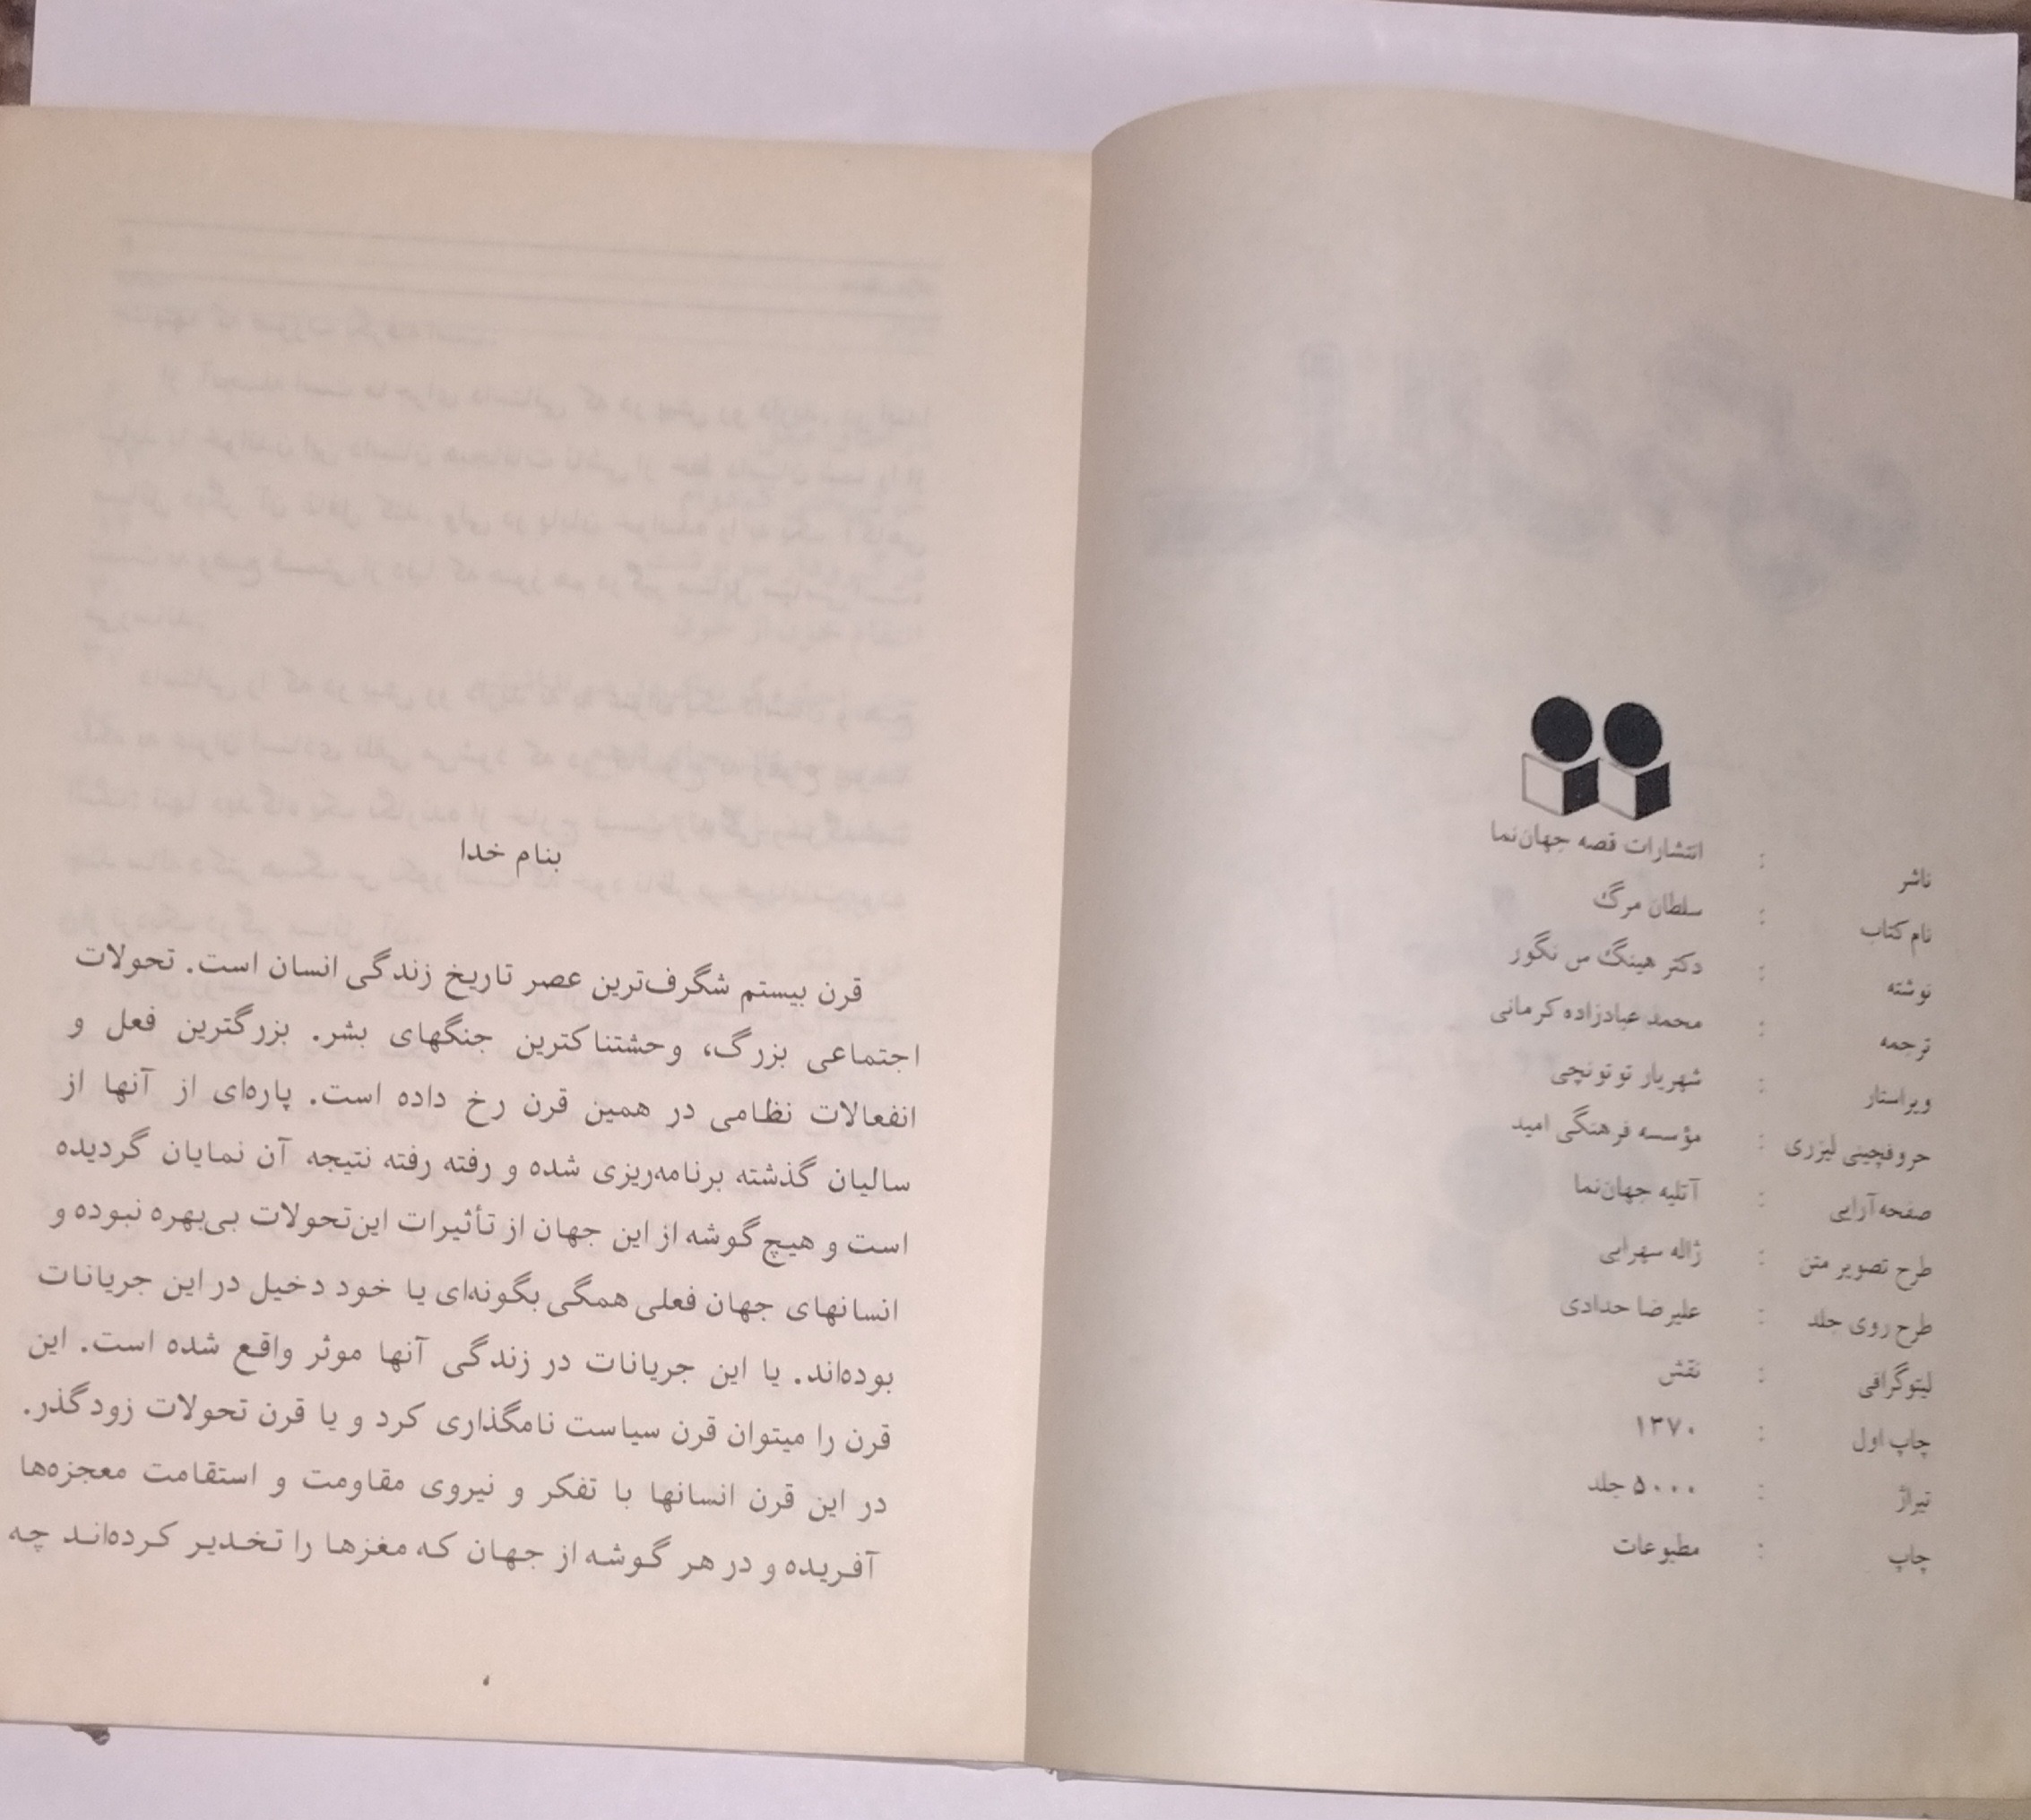 ناشر : انتشارات قصه جهان‌نما
نام کتاب : سلطان مرگ
نوشته : دکتر هینگ س نگور
ترجمه : محمد عبادزاده کرمانی
ویراستار : شهریار توتونچی
حروفچینی لیزری : مؤسسه فرهنگی امید
صفحه‌آرایی : آتلیه جهان‌نما
طرح تصویر متن : ژاله سهرابی
طرح روی جلد : علیرضا حدادی
لیتوگرافی : نقش
چاپ اول : ۱۳۷۰
تیراژ : ۵۰۰۰ جلد
چاپ : مطبوعات
بنام خدا
قرن بیستم شگرف‌ترین عصر تاریخ زندگی انسان است. تحولات
اجتماعی بزرگ، وحشتناکترین جنگهای بشر. بزرگترین فعل و
انفعالات نظامی در همین قرن رخ داده است. پاره‌ای از آنها از
سالیان گذشته برنامه‌ریزی شده و رفته رفته نتیجه آن نمایان گردیده
است و هیچ گوشه از این جهان از تأثیرات این‌تحولات بی‌بهره نبوده و
انسانهای جهان فعلی همگی بگونه‌ای یا خود دخیل در این جریانات
بوده‌اند. یا این جریانات در زندگی آنها موثر واقع شده است. این
قرن را میتوان قرن سیاست نامگذاری کرد و یا قرن تحولات زودگذر.
در این قرن انسانها با تفکر و نیروی مقاومت و استقامت معجزه‌ها
آفریده و در هر گوشه از جهان که مغزها را تخدیر کرده‌اند چه